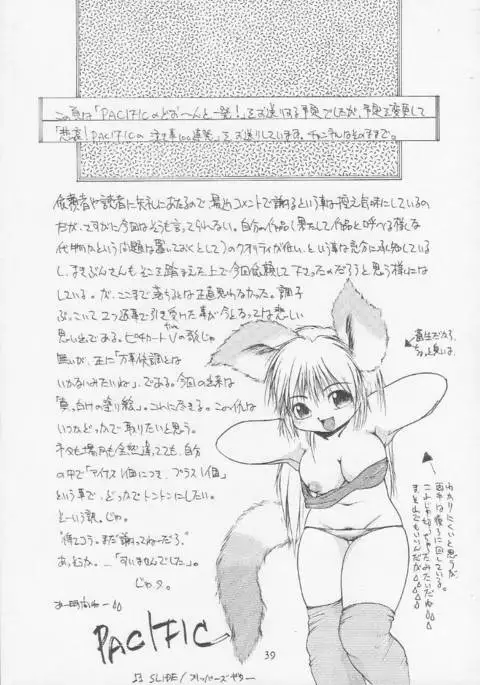 この頁は「PACIFICのどお〜んと一発!」をお送りする予定でしたが、予定を変更して
「悲哀!PACIFICの 100連発」をお送りしています。チャンネルはそのままで。
依頼者や読者に失礼にあたるので、最近コメントで謝るという事は控え気味にしているの
だが、ですがに今回はそうも言ってられない。自分の作品(果たして作品と呼べる様な
代物かという問題は置いておくとして)のクオリティが低い、という事は充分に承知しているし
、まさぶんさんもそこを踏まえた上で今回依頼して下さったのだろうと思う様には
している。が、ここまで落ちるとは正直思わなかった。調子
ぶっこいて2つ返事で引き受けた事が今となっては悲しい
思い出である。ピチカートVの歌じゃ
無いが、正に「万事快調とは
いかないみたいね」である。今回の出来は
「真っ白けの塗り絵」。これに尽きる。この仇は
いつかどっかで取りたいと思う。
ネタも場所も全然違ってても、自分
の中で「マイナス1個につき、プラス1個」
という事で、どっかでトントンにしたい。
と−いう訳。じゃ。
"待てコラ。まだ謝ってねーだろ。"
あっそうか。…「すいませんでした。」
じゃっ。
PACIFIC
わかりにくいと思うが、
両手は後ろに回している。
39
♫ SLIDE/フリッパーズギター